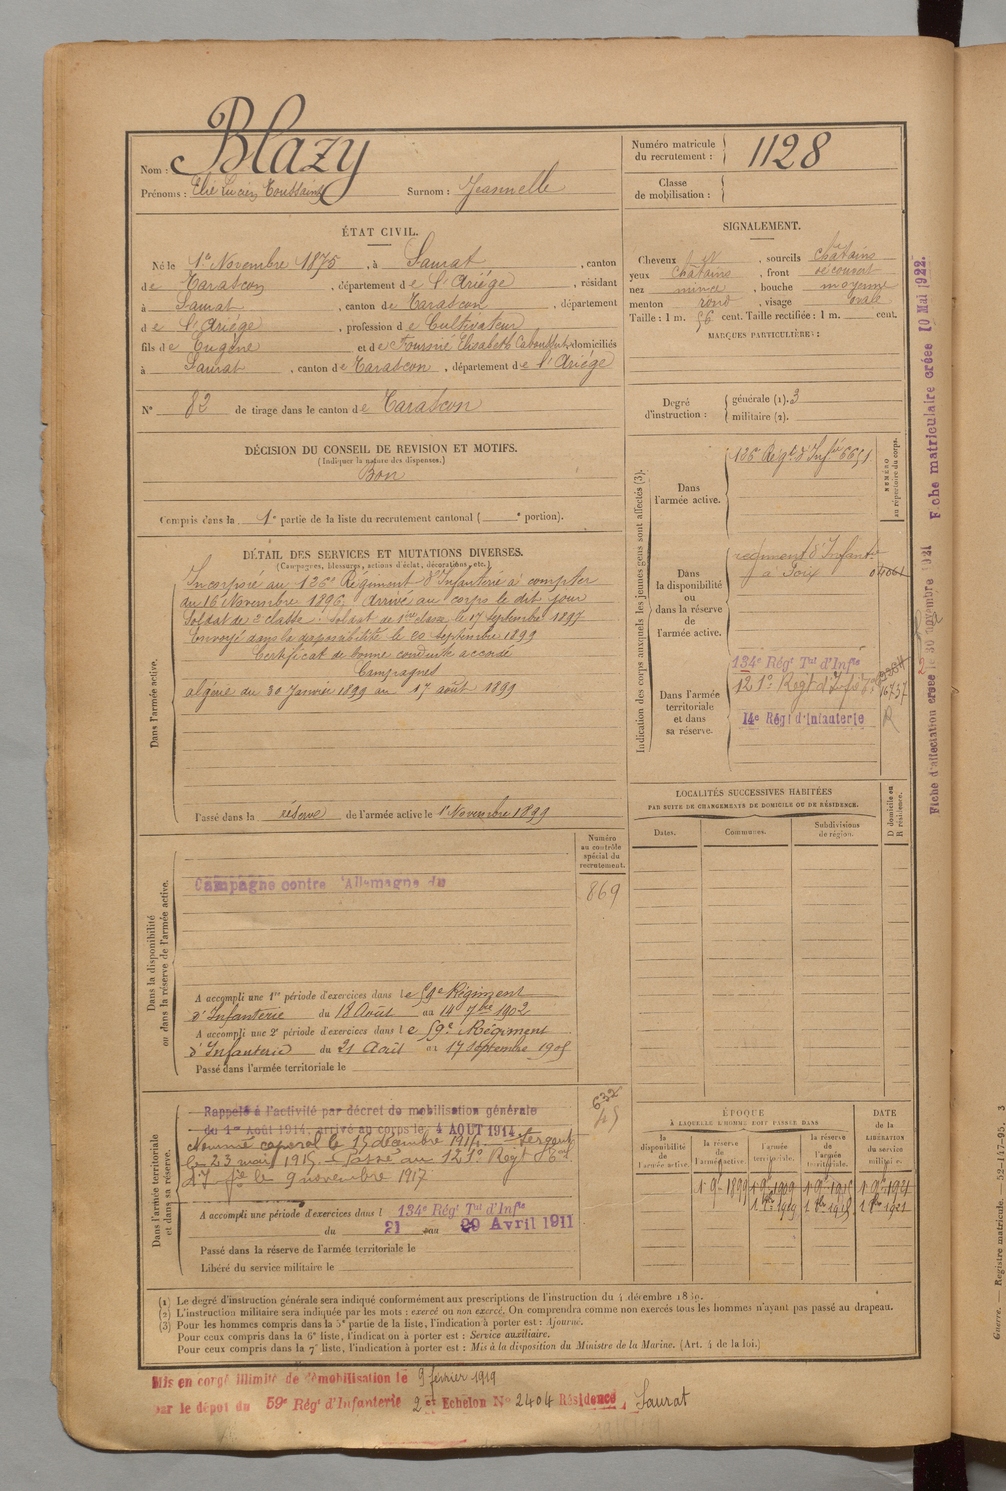 Nom : Blazy
Prénoms : Elie Lucien Toussaint Surnom : Jeannelle
Numéro matricule du recrutement : 1128
Classe de mobilisation :
ÉTAT CIVIL.
Né le 1er Novembre 1875, à Saurat, canton
de Tarascon, département de l'Ariège, résidant
à Saurat, canton de Tarascon, département
de l'Ariège, profession de Cultivateur
fils de Eugène et de Elisabeth domiciliés
à Saurat, canton de Tarascon, département de l'Ariège
N° 82 de tirage dans le canton de Tarascon
SIGNALEMENT.
Cheveux et, sourcils chatains
yeux chatains, front découvert
nez mince, bouche moyenne
menton rond, visage ovale
Taille : 1 m. 56 cent. Taille rectifiée : 1 m. cent.
MARQUES PARTICULIÈRES :
Degré d'instruction :
générale (1). 3
militaire (2).
DÉCISION DU CONSEIL DE REVISION ET MOTIFS.
(Indiquer la nature des dispenses.)
Bon
Compris dans la 1e partie de la liste du recrutement cantonal ( e portion).
DÉTAIL DES SERVICES ET MUTATIONS DIVERSES.
(Campagnes, blessures, actions d'éclat, décorations, etc.)
Dans l'armée active.
Incorporé au 126e Régiment d'Infanterie à compter
du 16 Novembre 1896, arrivé au corps le dit jour
Soldat de 2e classe. Soldat de 1ère classe le 17 septembre 1897
Envoyé dans la disponibilité le 20 septembre 1899
Certificat de bonne conduite accordé
Campagnes
algérie du 30 Janvier 1899 au 17 août 1899
Passé dans la réserve de l'armée active le 1er Novembre 1899
Indication des corps auxquels les jeunes gens sont affectés (3).
NUMÉRO au répertoire du corps.
Dans l'armée active.
126e Régt d'Infie 6651
Dans la disponibilité ou dans la réserve de l'armée active.
régiment d'Infanterie
à Foix
Dans l'armée territoriale et dans sa réserve.
134e Régt Tal d'Infie
121e Regt d'Infie
16757
14e Régt d'Infanterie
R
Fiche d'affectation créée le 30 novembre 1921
Fiche matriculaire créée 10 Mai 1922.
LOCALITÉS SUCCESSIVES HABITÉES
PAR SUITE DE CHANGEMENTS DE DOMICILE OU DE RÉSIDENCE.
Dates.
Communes.
Subdivisions de région.
D domicile ou R résidence.
Numéro au contrôle spécial du recrutement.
869
Dans la disponibilité ou dans la réserve de l'armée active.
Campagne contre l'Allemagne du
A accompli une 1re période d'exercices dans le 59e Régiment
d'Infanterie du 18 Août au 14 7bre 1902
A accompli une 2e période d'exercices dans le 59e Régiment
d'Infanterie du 21 Août au 17 Septembre 1905
Passé dans l'armée territoriale le
Dans l'armée territoriale et dans sa réserve.
632
Rappelé à l'activité par décret de mobilisation générale
du 1er Août 1914, arrivé au corps le 4 AOUT 1914.
Nommé caporal le 15 décembre 1914. Sergent
le 23 mai 1915. Passé au 121e Regt
d'Infie le 9 novembre 1917
A accompli une période d'exercices dans l 134e Régt Tal d'Infie
du 21 au 29 Avril 1911
Passé dans la réserve de l'armée territoriale le
Libéré du service militaire le
ÉPOQUE
À LAQUELLE L'HOMME DOIT PASSER DANS
DATE DE LA LIBÉRATION du service militaire.
la disponibilité de l'armée active.
la réserve de l'armée active.
l'armée territoriale.
la réserve de l'armée territoriale.
(1) Le degré d'instruction générale sera indiqué conformément aux prescriptions de l'instruction du 4 décembre 1889.
(2) L'instruction militaire sera indiquée par les mots : exercé ou non exercé. On comprendra comme non exercés tous les hommes n'ayant pas passé au drapeau.
(3) Pour les hommes compris dans la 5e partie de la liste, l'indication à porter est : Ajourné.
Pour ceux compris dans la 6e liste, l'indication à porter est : Service auxiliaire.
Pour ceux compris dans la 7e liste, l'indication à porter est : Mis à la disposition du Ministre de la Marine. (Art. 4 de la loi.)
Mis en congé illimité de démobilisation le 9 février 1919
par le dépôt du 59e Régt d'Infanterie 2e Echelon N° 2404 Résidence Saurat
Guerre. — Registre matricule. — 52-147-95. 3